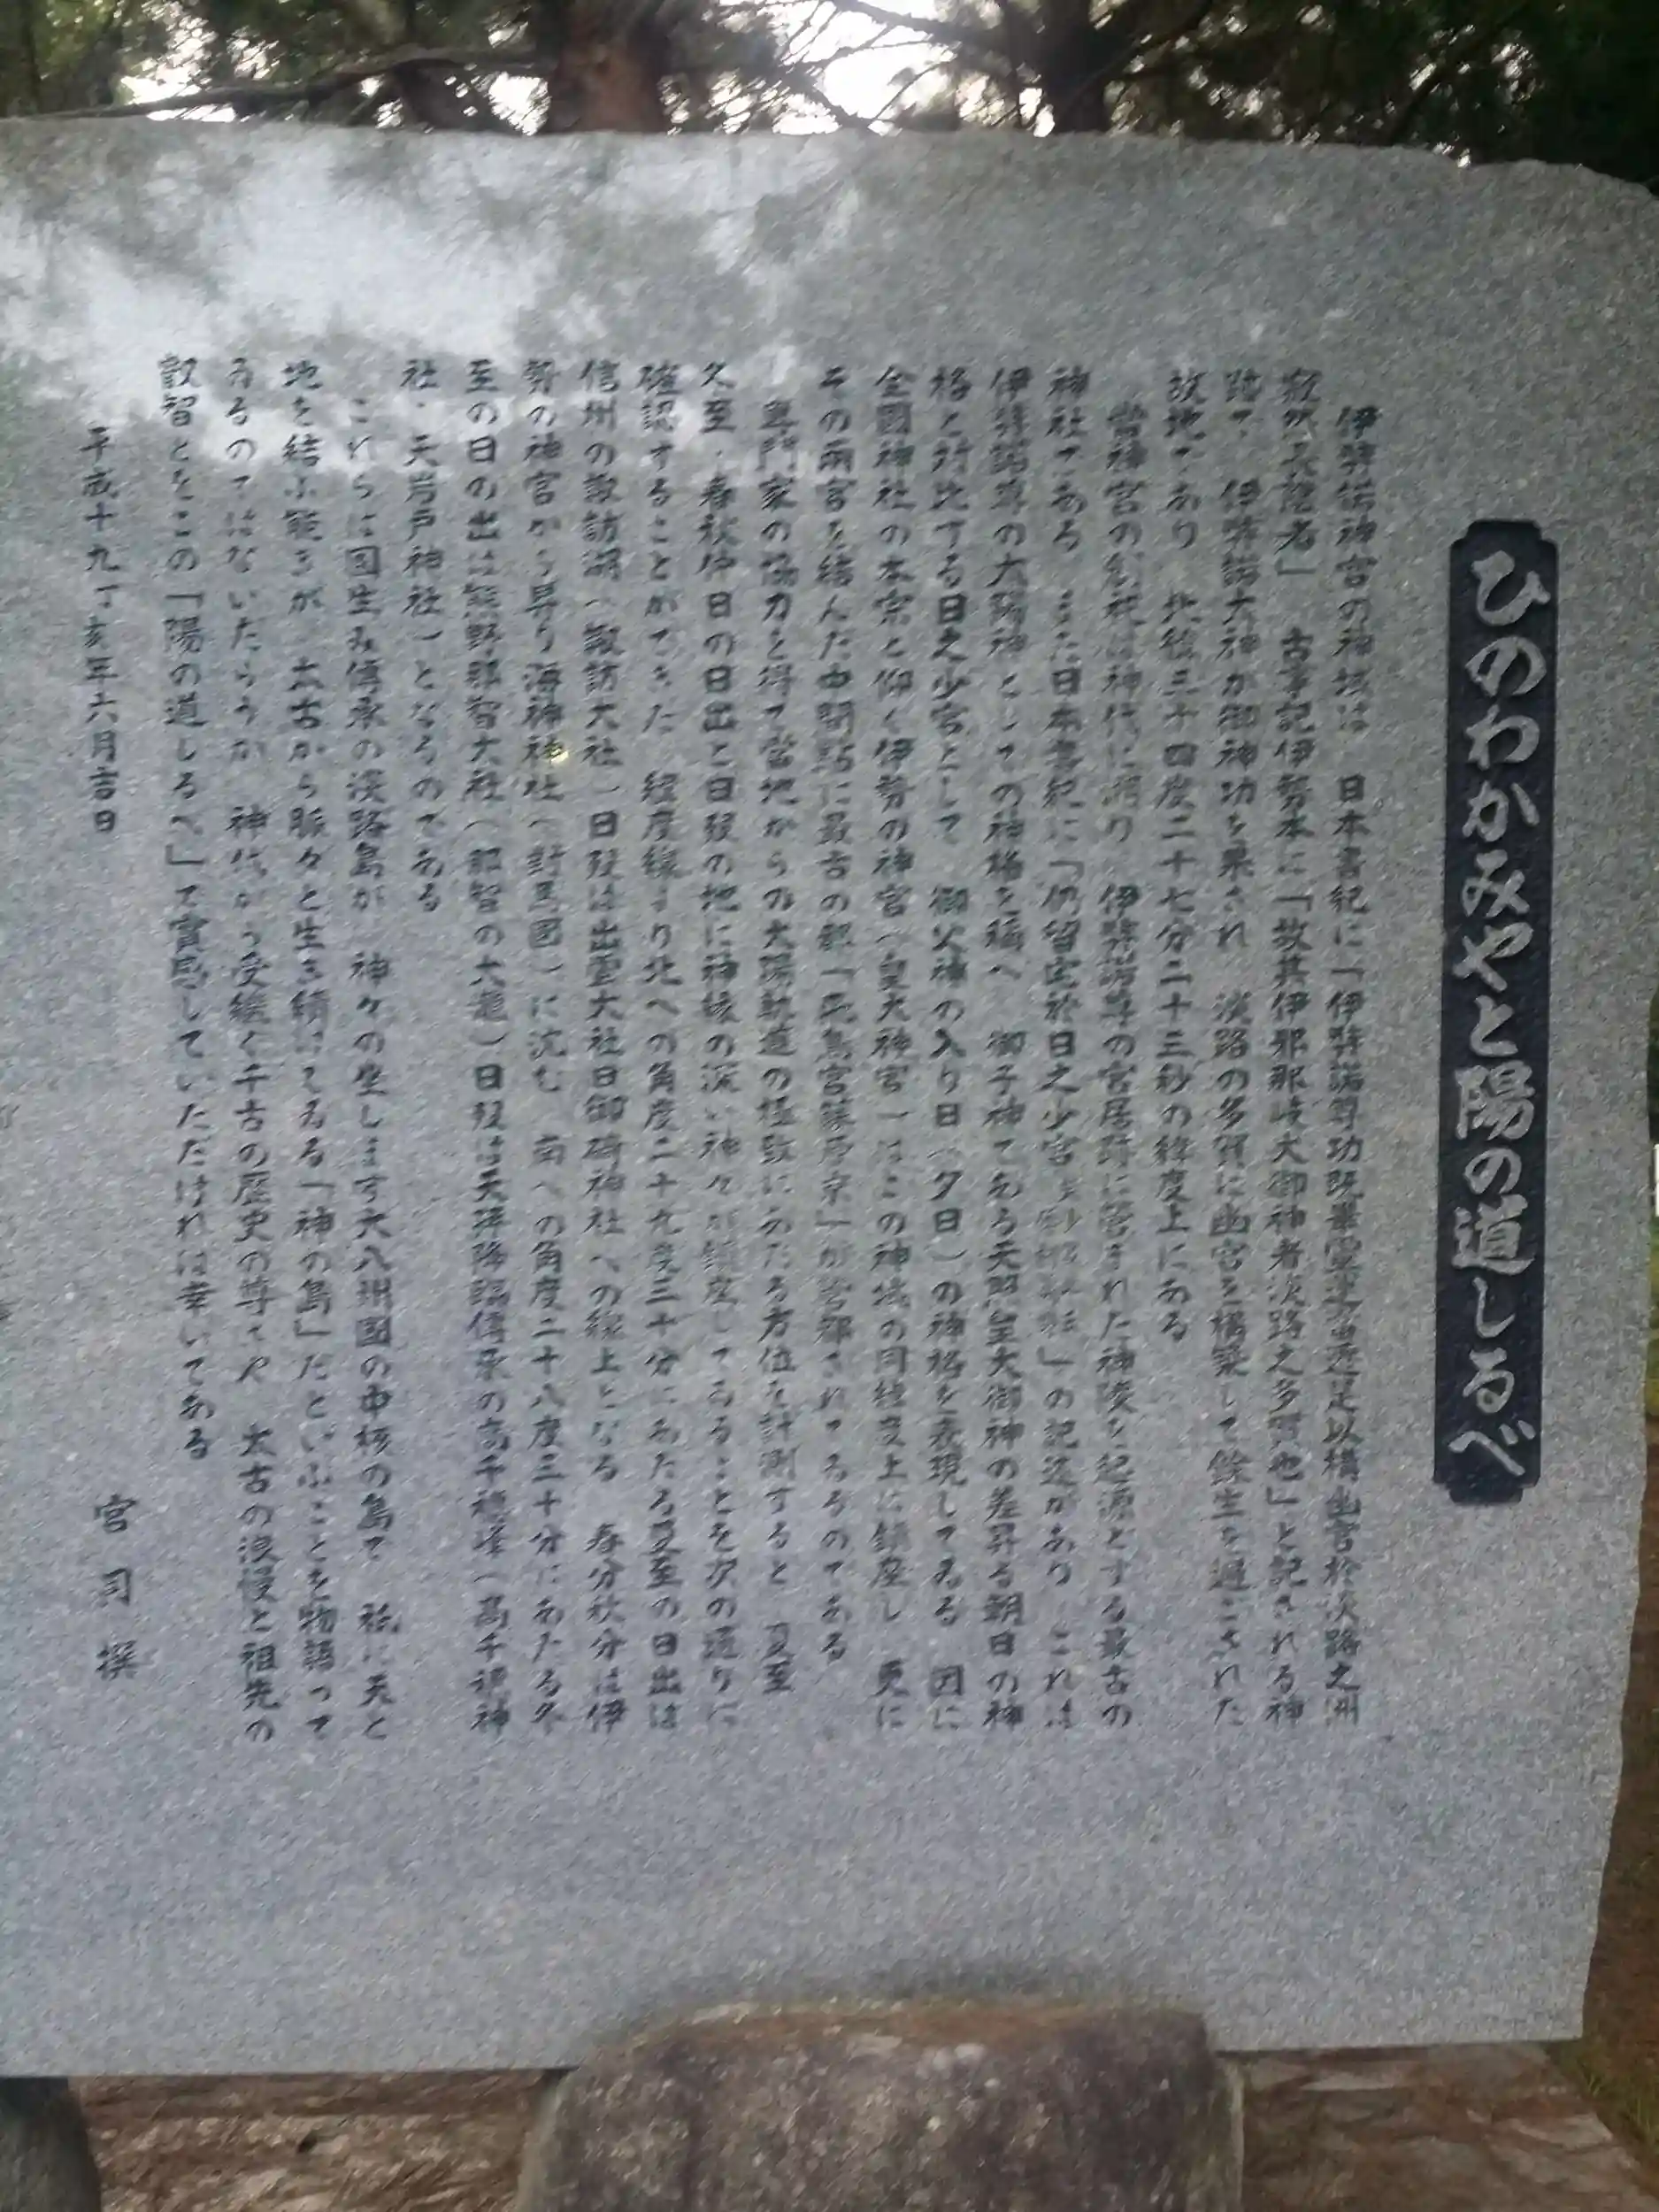 ひのわかみやと陽の道しるべ
伊弉諾神宮の神域は 日本書紀に「伊弉諾尊功既畢靈運當遷是以構幽宮於淡路之洲
寂然長隠者」 古事記伊勢本に「故其伊耶那岐大御神者淡路之多賀也」と記される神
跡で 伊弉諾大神が御神功を果され 淡路の多賀に幽宮を構築して餘生を過ごされた
故地であり 北緯三十四度二十七分二十三秒の緯度上にある
當神宮の創祀は神代に溯り 伊弉諾尊の宮居跡に營まれた神陵を起源とする最古の
神社である また日本書紀に「仍留宅於日之少宮 」の記述があり これは
伊弉諾尊の太陽神としての神格を稱へ 御子神である天照皇大御神の差昇る朝日の神
格と対比する日之少宮として 御父神の入り日(夕日)の神格を表現してゐる 因に
全國神社の本宗と仰ぐ伊勢の神宮(皇大神宮)はこの神域の同緯度上に鎮座し 更に
その両宮を結んだ中間點に最古の都「飛鳥宮藤原京」が営都されてゐるのである
専門家の協力を得て當地からの太陽軌道の極致にあたる方位を計測すると 夏至
冬至・春秋仲日の日出と日没の地に神縁の深い神々が鎮座してゐることを次の通りに
確認することができた 経度線より北への角度二十九度三十分にあたる夏至の日出は
信州の諏訪湖(諏訪大社)日没は出雲大社日御碕神社への線上となる 春分秋分は伊
勢の神宮から昇り海神神社(対馬國)に沈む 南への角度二十八度三十分にあたる冬
至の日の出は熊野那智大社(那智の大瀧)日没は天孫降臨傳承の高千穂峰(高千穂神
社・天岩戸神社)となるのである
これらは国生み傳承の淡路島が 神々の坐します大八州國の中核の島で 祇に天と
地を結ぶ能きが 太古から脈々と生き續けてゐる「神の島」だといふことを物語って
ゐるのではないだらうか 神代から受継ぐ千古の歴史の尊さや 太古の浪漫と祖先の
叡智とをこの「陽の道しるべ」で實感していただければ幸いである
平成十九丁亥年六月吉日
宮司 撰